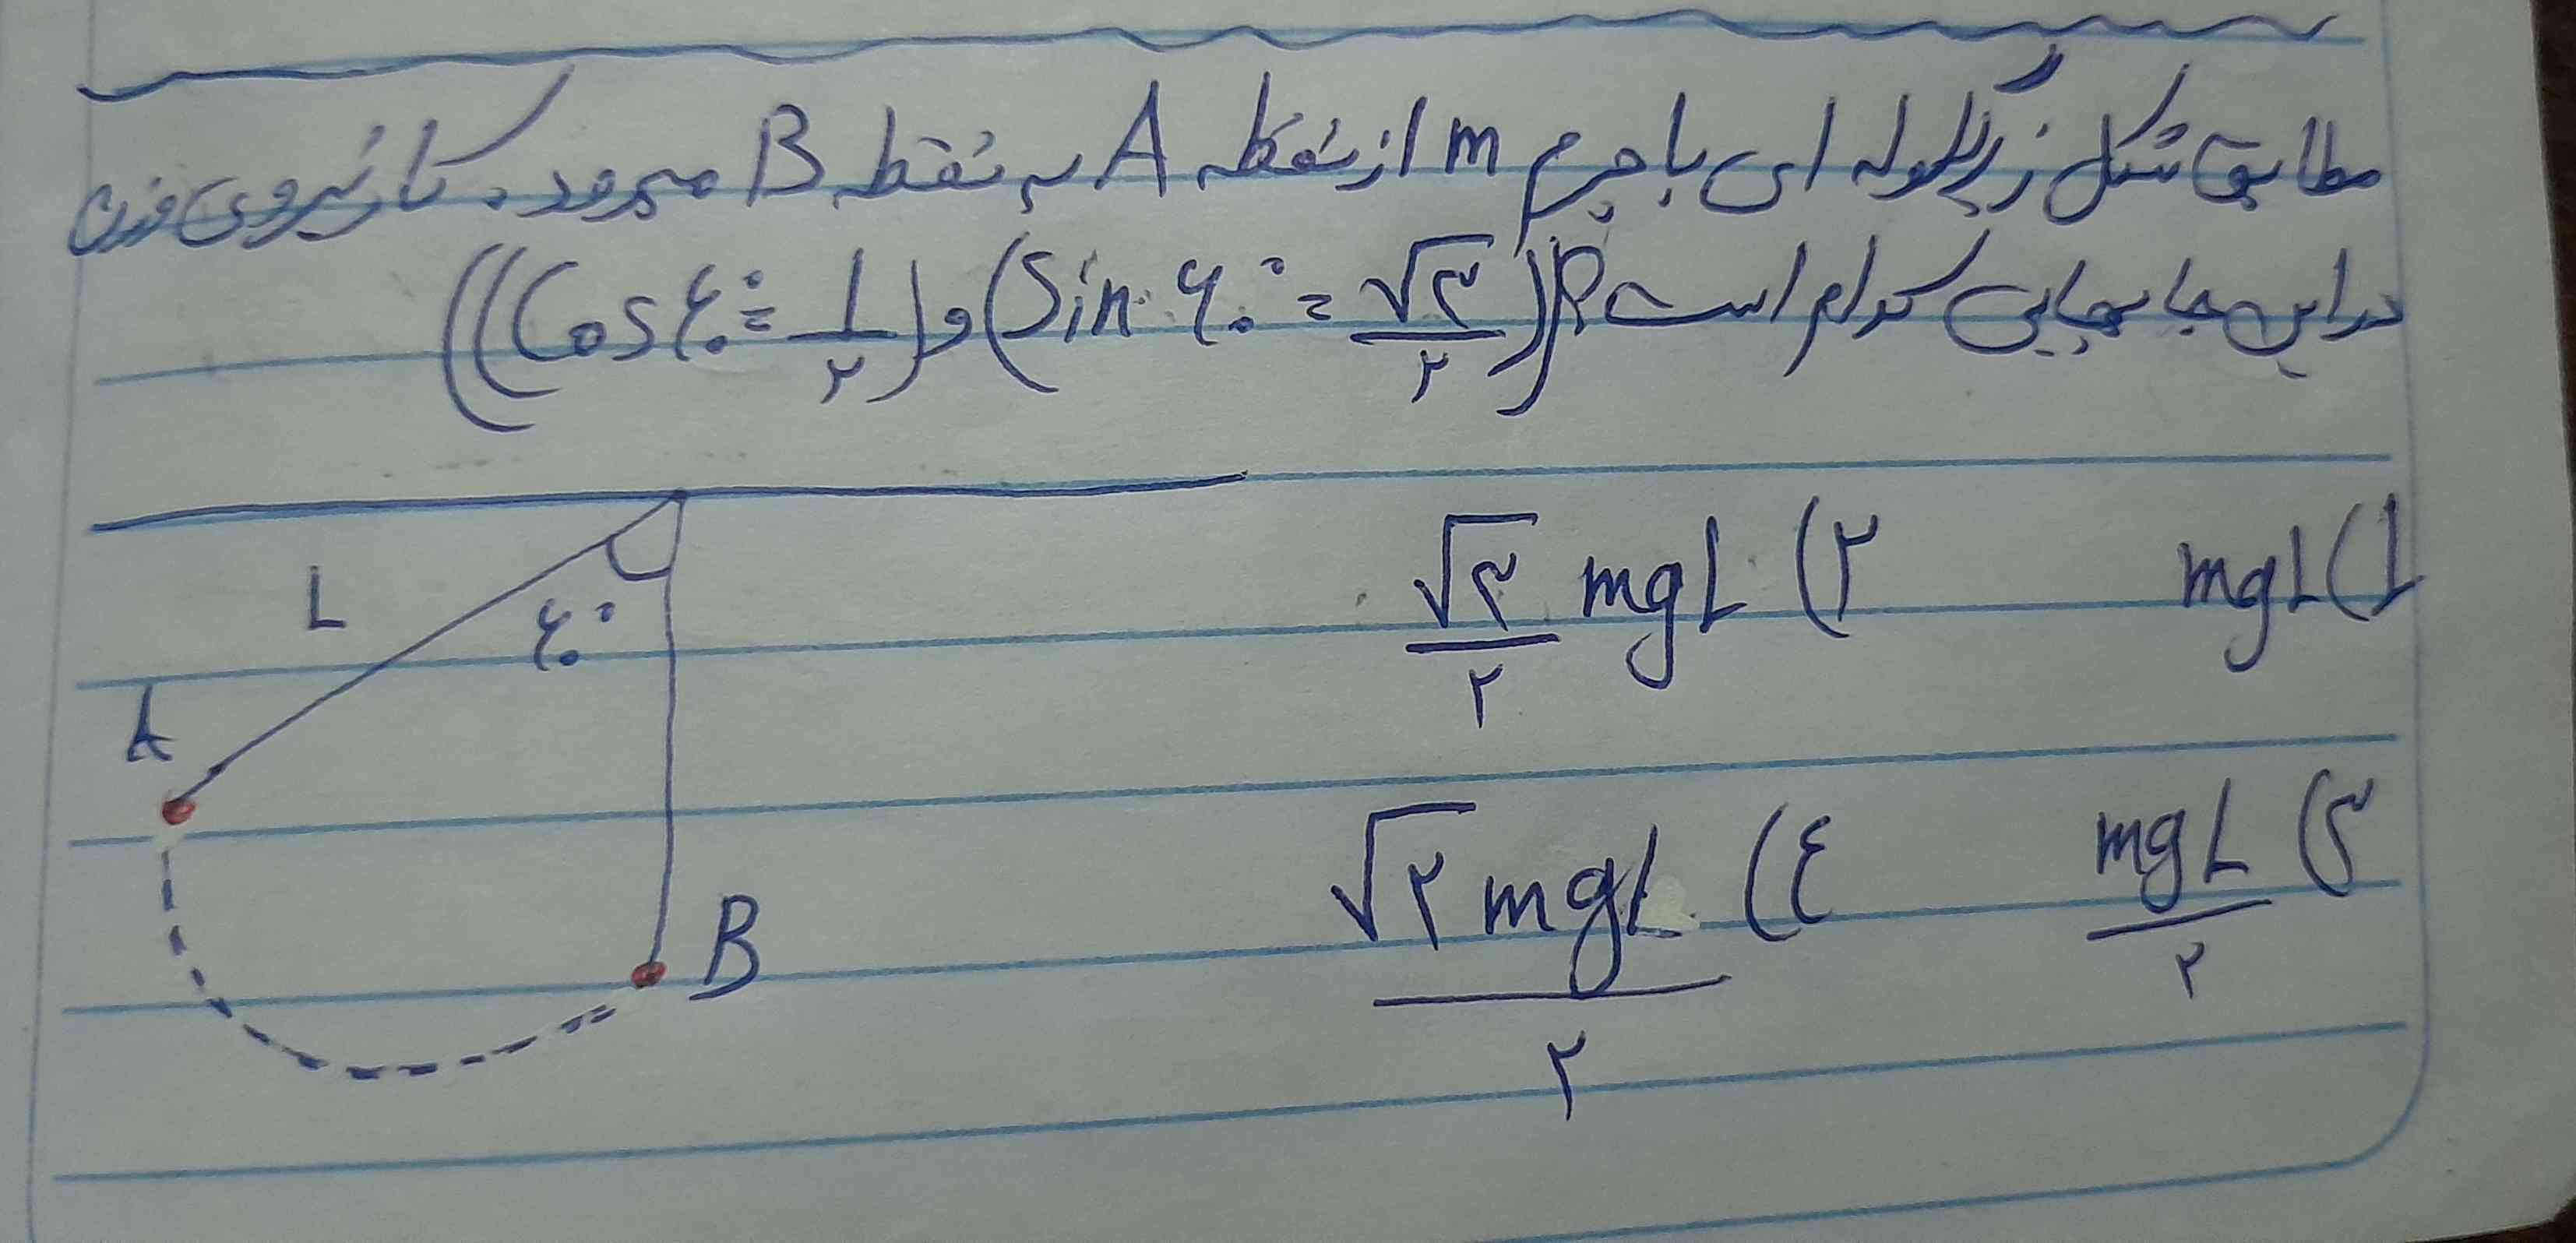 مطابق شکل زیر گلوله ای با جرم m از نقطه A به نقطه B میرود. کار نیروی وزن
در این جا بهجایی کدام است؟ ((Sin ۶۰° = √۳/۲) و (Cos ۶۰° = ۱/۲))
۱) mgL
۲) √۳/۲ mgL
۳) mgL/۲
۴) √۲mgL/۲
L
۶۰°
A
B